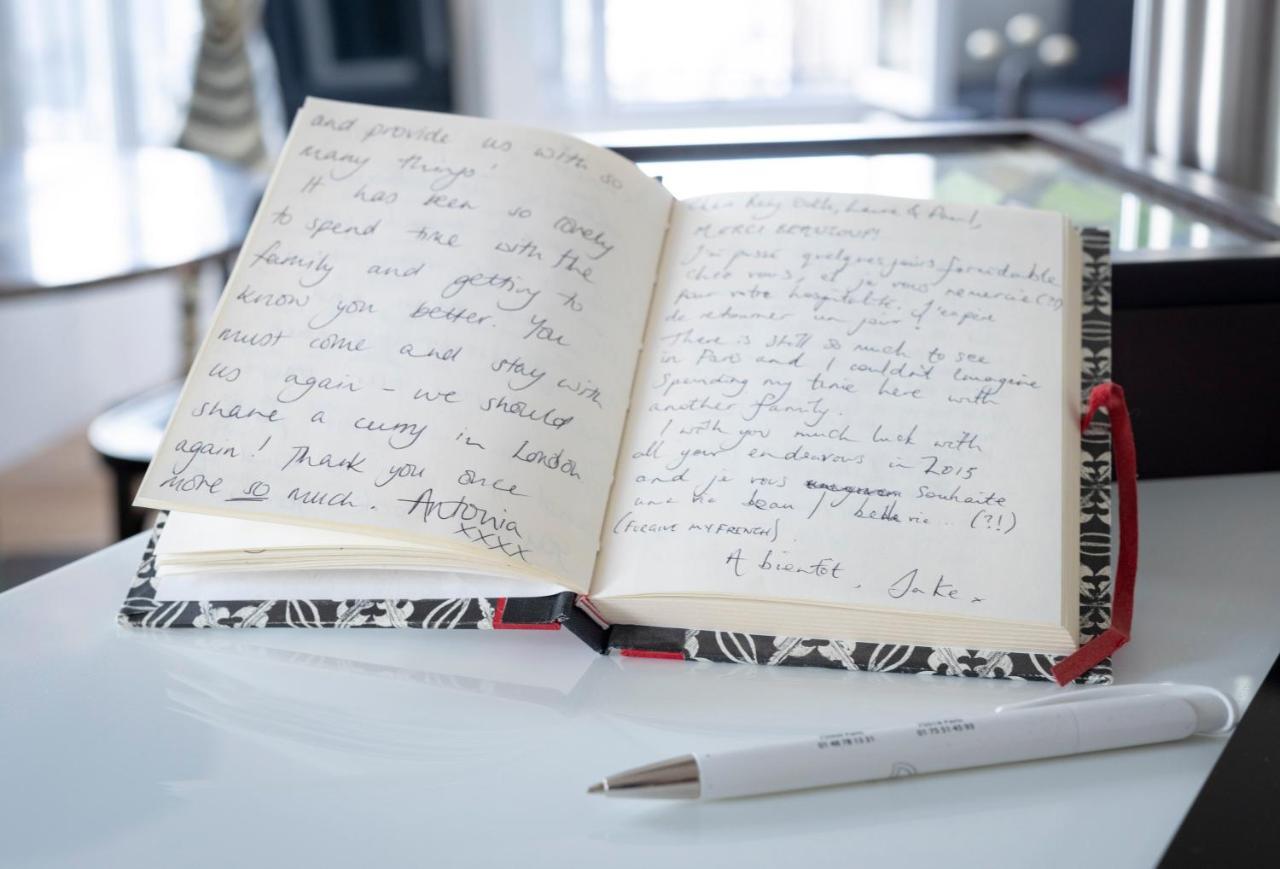 and provide us with so
many things!
It has been so lovely
to spend time with the
family and getting to
know you better. You
must come and stay with
us again - we should
share a curry in London
again! Thank you once
more so much. Antonia
xxxx
MERCI BEAUCOUP!
J'ai passé quelques jours formidable
chez vous, et je vous remercie (?!)
pour votre hospitalité. J'espère
de retourner un jour!
There is still so much to see
in Paris and I couldn't imagine
spending my time here with
another family.
I wish you much luck with
all your endeavours in 2015
and je vous souhaite
une vie beau / belle vie... (?!)
(FORGIVE MY FRENCH)
A bientot, Jake x